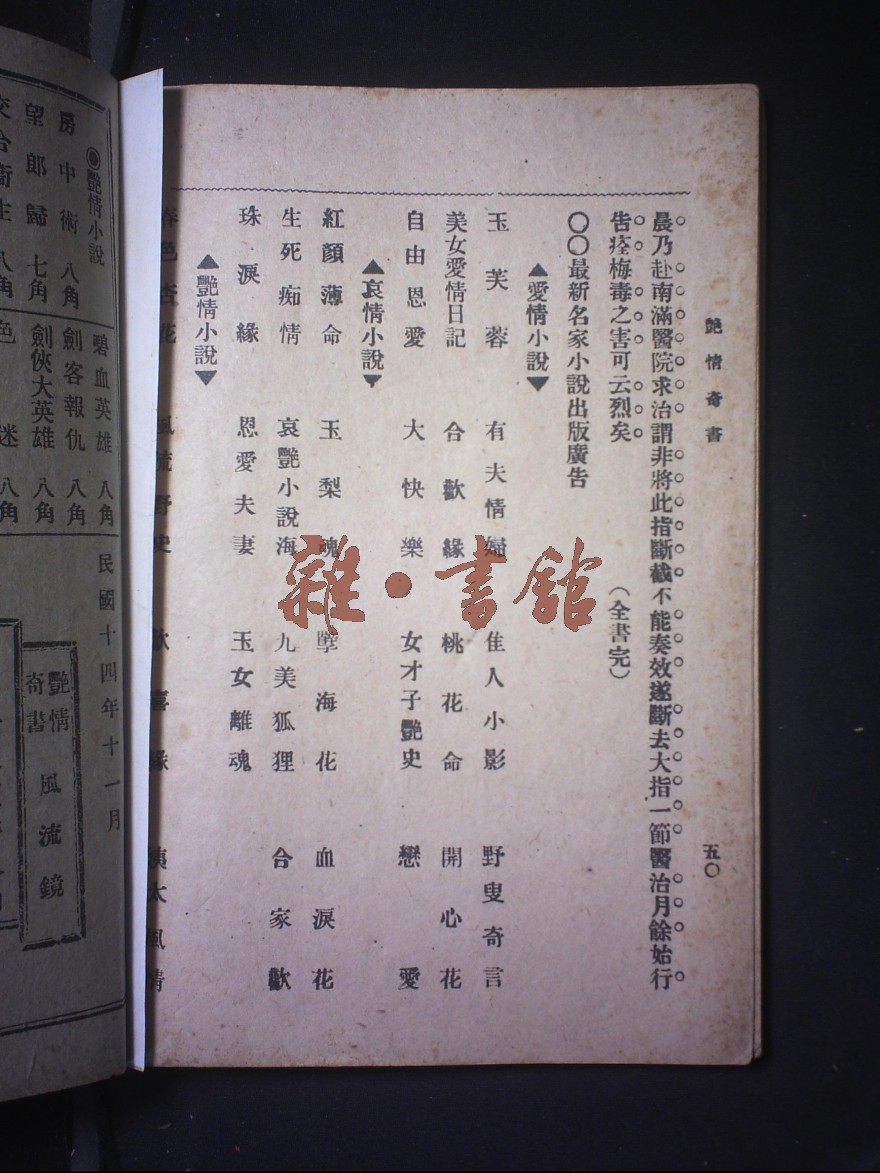 艷情奇書
五〇
晨乃赴南滿醫院求治謂非將此指斷截不能奏效遂斷去大指一節醫治月餘始行
告痊梅毒之害可云烈矣
(全書完)
〇〇最新名家小說出版廣告
▲愛情小說▼
玉芙蓉 有夫情婦 佳人小影 野叟奇言
美女愛情日記 合歡緣 桃花命 開心花
自由恩愛 大快樂 女才子艷史 戀愛
▲哀情小說▼
紅顏薄命 玉梨魂 孽海花 血淚花
生死痴情 哀艷小說海 九美狐狸 合家歡
珠淚緣 恩愛夫妻 玉女離魂
▲艷情小說▼
風流野史
雜·書館
民國十四年十一月
碧血英雄 八角
劍客報仇 八角
劍俠大英雄 八角
色迷 八角
◉艷情小說
房中術 八角
望郎歸 七角
交合衛生 八角
艷情奇書 風流鏡